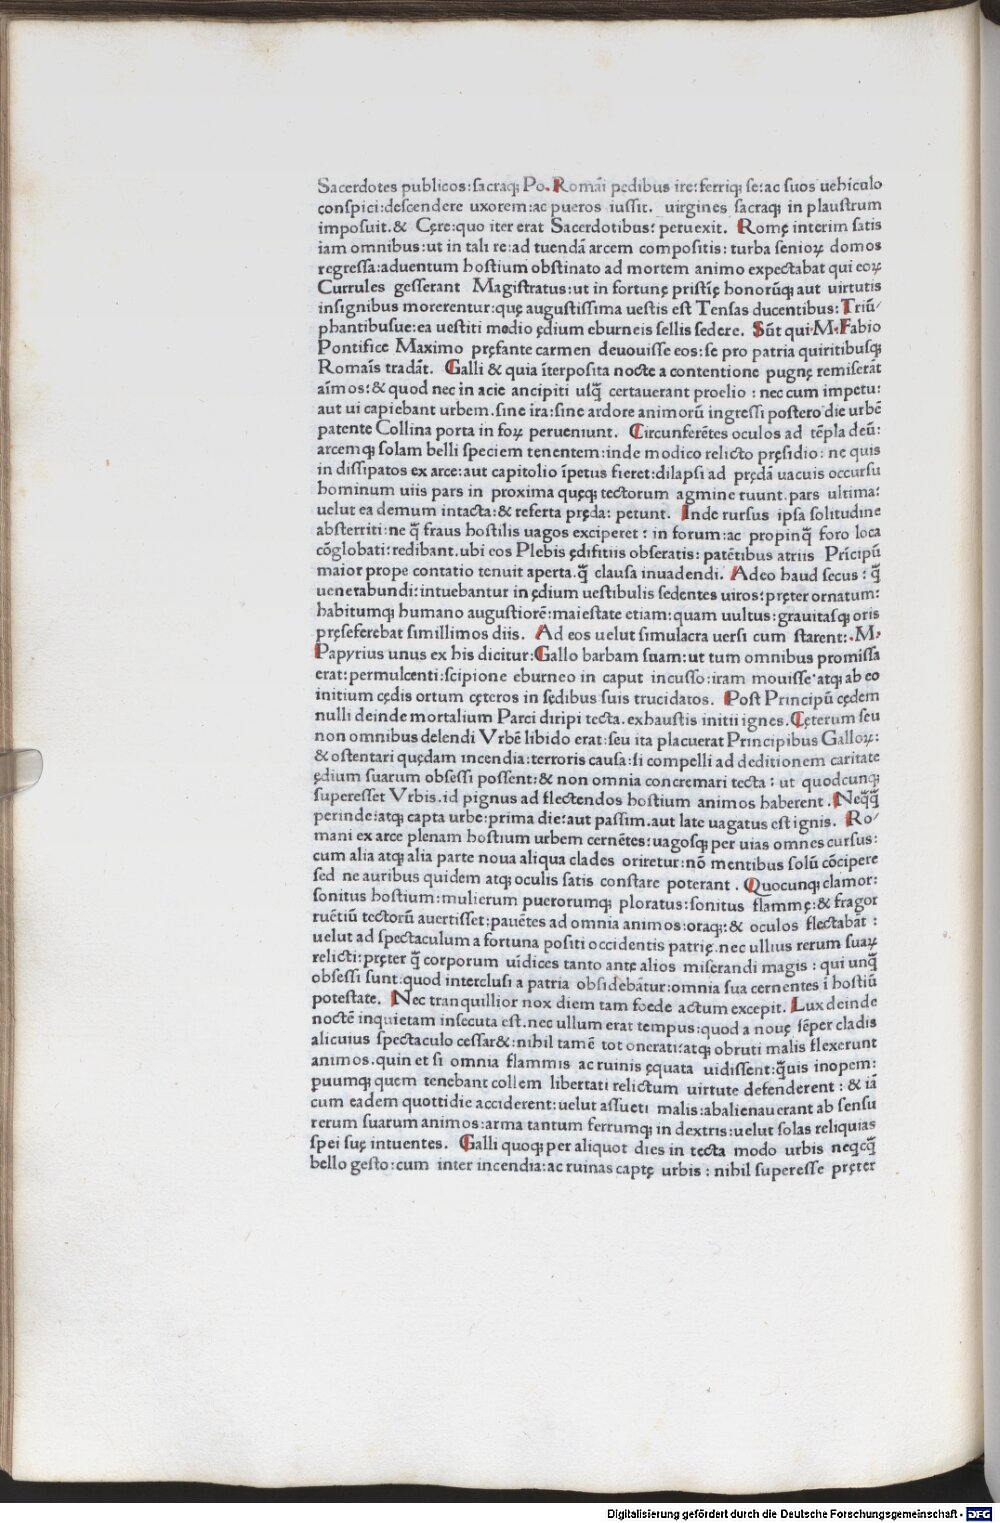 Sacerdotes publicos:sacraq; Po. Romāi pedibus ire:ferriq; se:ac suos uehiculo
conspici:descendere uxorem:ac pueros iussit. uirgines sacraq; in plaustrum
imposuit.& Cęre:quo iter erat Sacerdotibus: peruexit. Romę interim satis
iam omnibus:ut in tali re:ad tuendā arcem compositis: turba senioꝝ domos
regressa:aduentum hostium obstinato ad mortem animo expectabat qui eoꝝ
Currules gesserant Magistratus:ut in fortunę pristīę honorūq; aut uirtutis
insignibus morerentur:quę augustissima uestis est Tensas ducentibus: Triū/
phantibusue:ea uestiti medio ędium eburneis sellis sedere. Sūt qui.M.Fabio
Pontifice Maximo pręfante carmen deuouisse eos:se pro patria quiritibusq;
Romaīs tradāt. Galli & quia īterposita nocte a contentione pugnę remiserāt
aīmos:& quod nec in acie ancipiti usq̄ certauerant proelio : nec cum impetu:
aut ui capiebant urbem.sine ira:sine ardore animorū ingressi postero die urbē
patente Collina porta in foꝝ perueniunt. Circunferētes oculos ad tēpla deū:
arcemq; solam belli speciem tenentem:inde modico relicto pręsidio: ne quis
in dissipatos ex arce:aut capitolio īpetus fieret:dilapsi ad prędā uacuis occursu
hominum uiis pars in proxima quęq; tectorum agmine ruunt.pars ultima:
uelut ea demum intacta:& referta pręda: petunt. Inde rursus ipsa solitudine
absterriti:ne q̄ fraus hostilis uagos exciperet : in forum:ac propinq̄ foro loca
cōglobati:redibant.ubi eos Plebis ędifitiis obseratis: patētibus atriis Prīcipū
maior prope contatio tenuit aperta.q̄ clausa inuadendi. Adeo haud secus : q̄
uenerabundi:intuebantur in ędium uestibulis sedentes uiros:pręter ornatum:
habitumq; humano augustiorē:maiestate etiam:quam uultus:grauitasq; oris
pręseferebat simillimos diis. Ad eos uelut simulacra uersi cum starent:.M.
Papyrius unus ex his dicitur:Gallo barbam suam:ut tum omnibus promissa
erat:permulcenti:scipione eburneo in caput incusso:iram mouisse:atq; ab eo
initium cędis ortum cęteros in sedibus suis trucidatos. Post Principū cędem
nulli deinde mortalium Parci diripi tecta.exhaustis initii ignes.Cęterum seu
non omnibus delendi Vrbē libido erat:seu ita placuerat Principibus Galloꝝ:
& ostentari quędam incendia:terroris causa:si compelli ad deditionem caritate
ędium suarum obsessi possent:& non omnia concremari tecta : ut quodcunq;
superesset Vrbis.id pignus ad flectendos hostium animos haberent . Neq̄q̄
perinde:atq; capta urbe:prima die:aut passim.aut late uagatus est ignis. Ro/
mani ex arce plenam hostium urbem cernētes:uagosq; per uias omnes cursus:
cum alia atq; alia parte noua aliqua clades oriretur:nō mentibus solū cōcipere
sed ne auribus quidem atq; oculis satis constare poterant . Quocunq; clamor:
sonitus hostium:mulierum puerorumq; ploratus:sonitus flammę:& fragor
ruētiū tectorū auertisset:pauētes ad omnia animos:oraq;:& oculos flectabāt :
uelut ad spectaculum a fortuna positi occidentis patrię.nec ullius rerum suaꝝ
relicti:pręter q̄ corporum uīdices tanto ante alios miserandi magis : qui unq̄
obsessi sunt:quod interclusi a patria obsidebātur:omnia sua cernentes ī hostiū
potestate. Nec tranquillior nox diem tam foede actum excepit. Lux deinde
noctē inquietam insecuta est.nec ullum erat tempus:quod a nouę sēper cladis
alicuius spectaculo cessar&:nihil tamē tot onerati:atq; obruti malis flexerunt
animos.quin et si omnia flammis ac ruinis ęquata uidissent:q̄uis inopem:
puumq; quem tenebant collem libertati relictum uirtute defenderent : & iā
cum eadem quottidie acciderent:uelut assueti malis:abalienauerant ab sensu
rerum suarum animos:arma tantum ferrumq; in dextris:uelut solas reliquias
spei suę intuentes. Galli quoq; per aliquot dies in tecta modo urbis neqcq̄
bello gesto:cum inter incendia:ac ruinas captę urbis : nihil superesse pręter
Digitalisierung gefördert durch die Deutsche Forschungsgemeinschaft - DFG